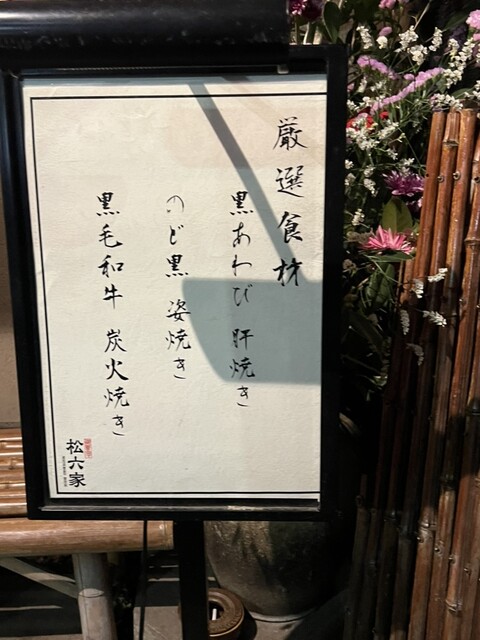 厳選食材
黒あわび 肝焼き
のど黒 姿焼き
黒毛和牛 炭火焼き
松六家